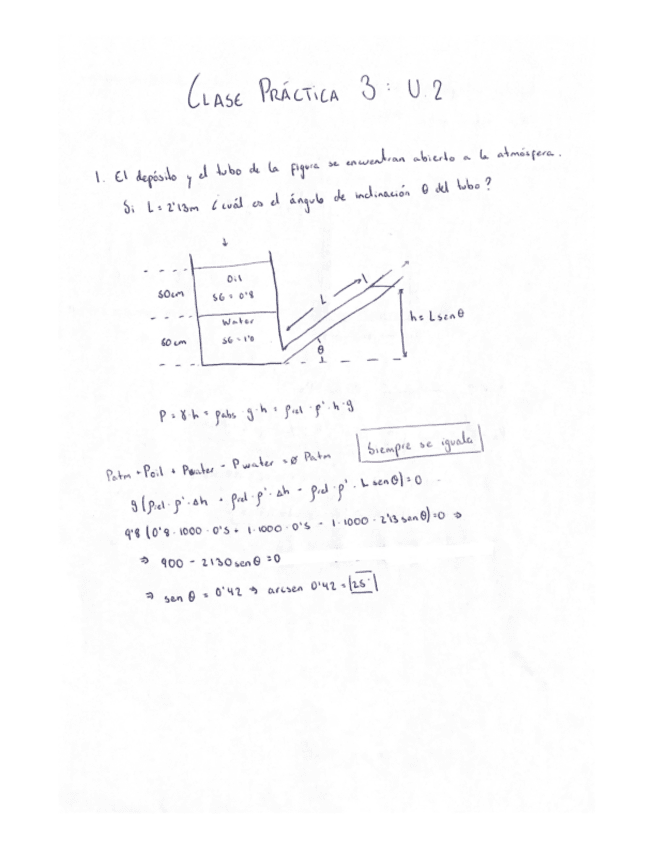 CLASE PRÁCTICA 3: U.2
1. El depósito y el tubo de la figura se encuentran abierto a la atmósfera.
Si L = 2'13m ¿cuál es el ángulo de inclinación θ del tubo?
50cm
Oil
SG = 0'8
Water
SG = 1'0
60cm
L
θ
h = L senθ
P = γ·h = ρabs · g·h = ρrel · ρ' · h·g
Patm + Poil + Pwater - Pwater = Patm
Siempre se iguala
g(ρrel·ρ'·Δh + ρrel·ρ'·Δh - ρrel·ρ'·L senθ) = 0
9'8 (0'8·1000·0'5 + 1·1000·0'5 - 1·1000·2'13 senθ) = 0 ⇒
⇒ 900 - 2130 senθ = 0
⇒ sen θ = 0'42 ⇒ arcsen 0'42 = 25°